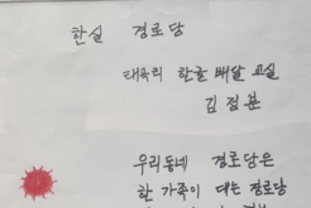 한실 경로당
태곡리 한글 배달 교실
김점분
우리동네 경로당은
한 가족이 대는 경로당